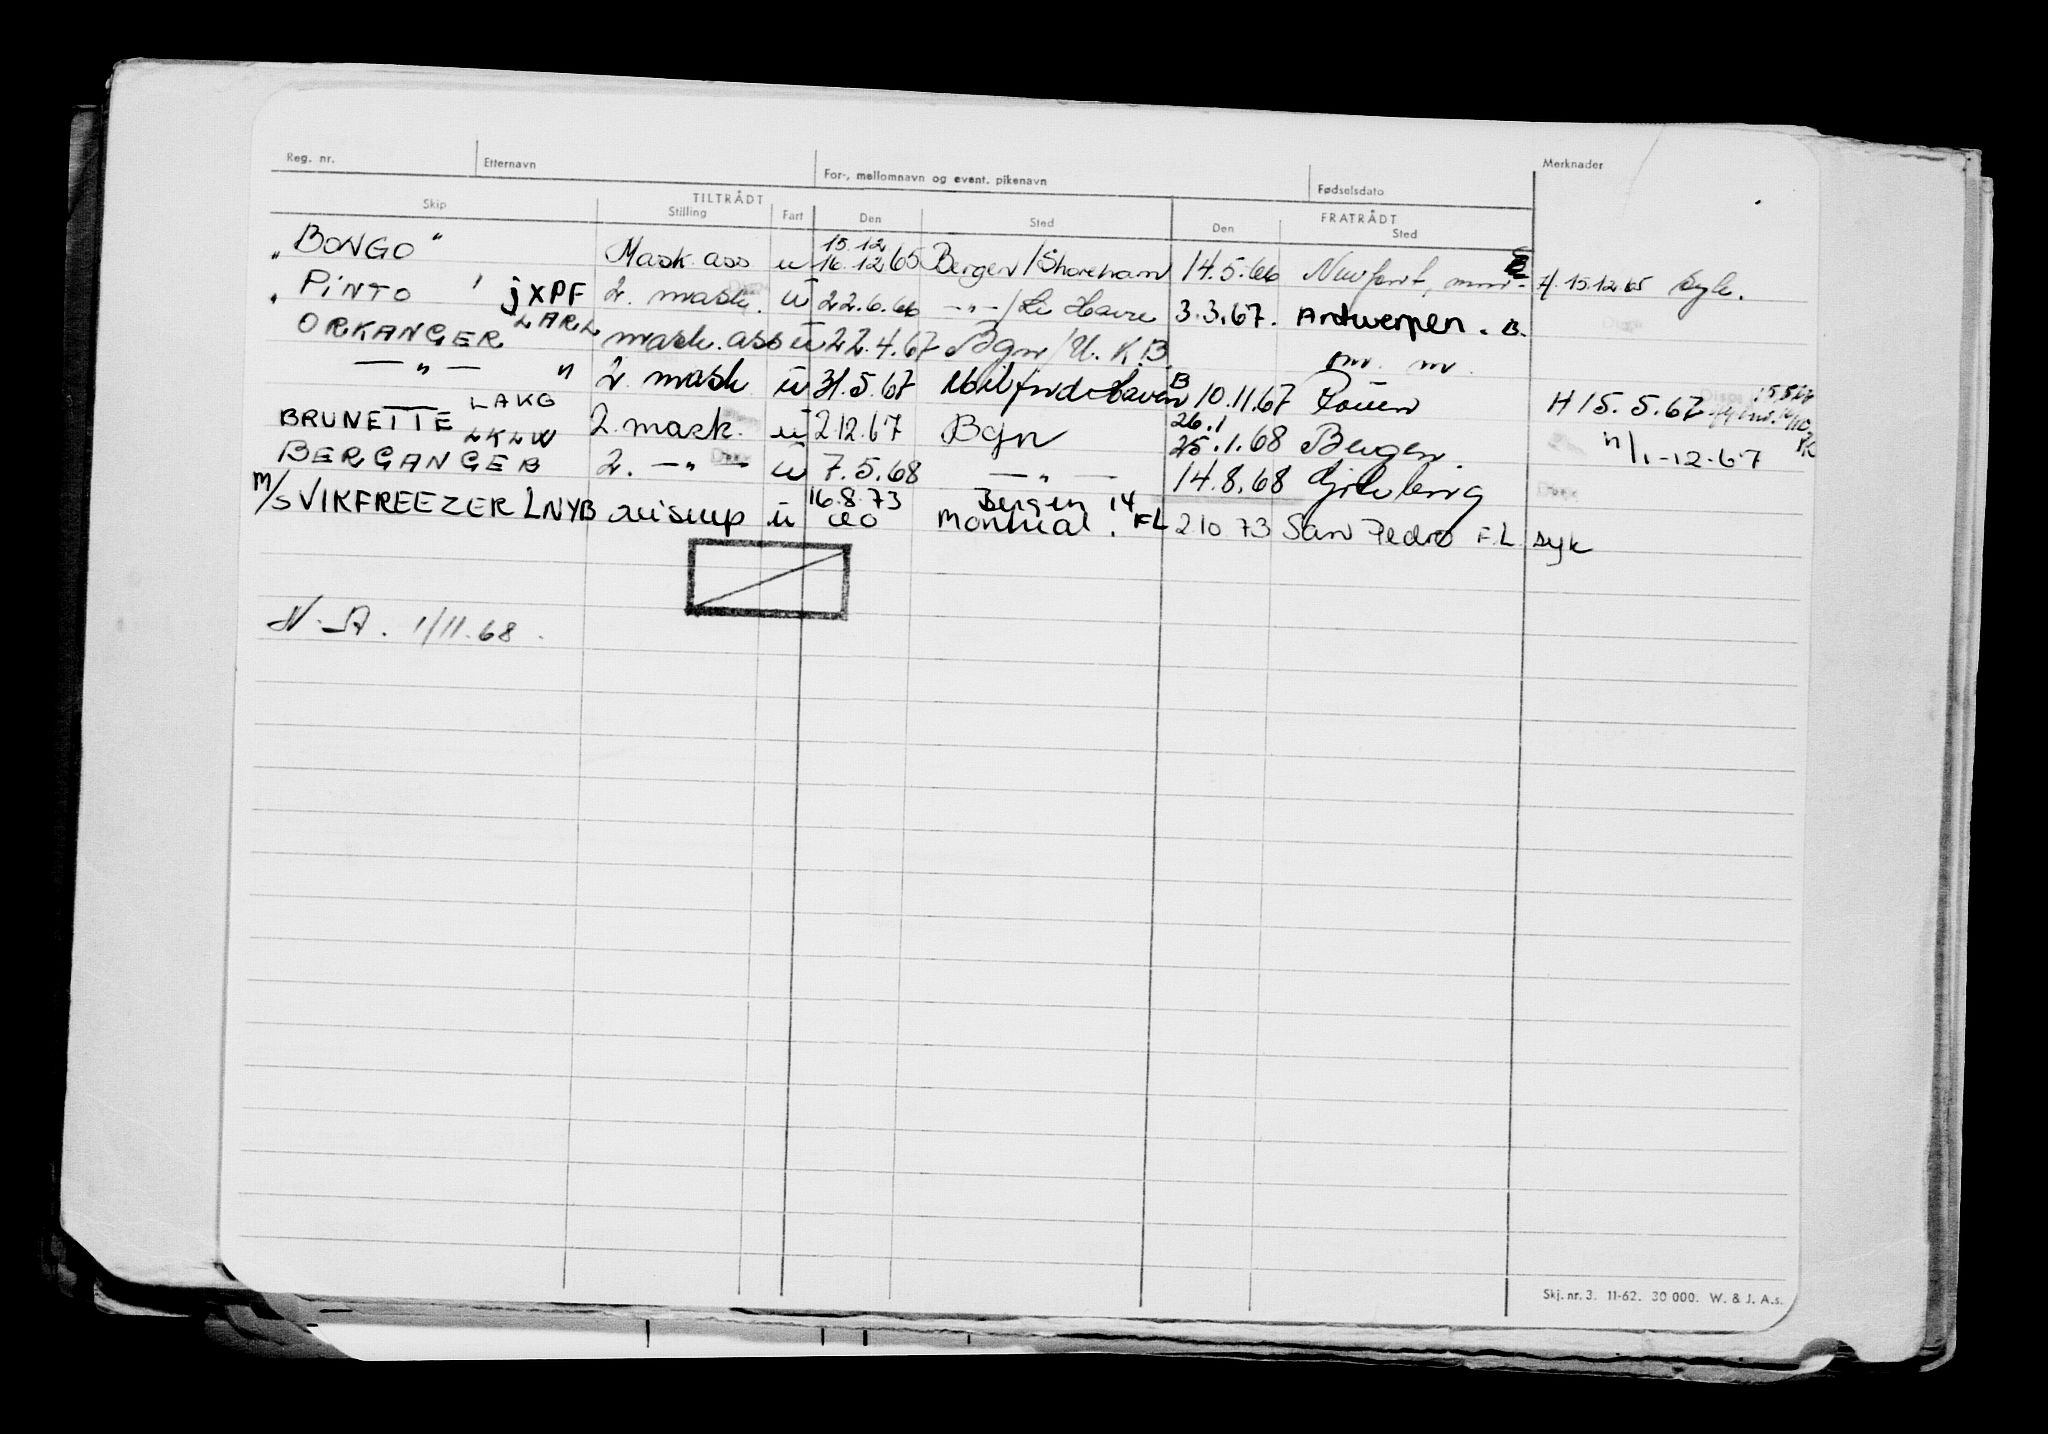 Reg. nr. Etternavn For-, mellomnavn og event. pikenavn Fødselsdato Merknader
TILTRÅDT FRATRÅDT
Skip Stilling Fart Den Sted Den Sted
15.12
„ BONGO " Mask. ass u 16.12 65 Bergen/Shoreham 14.5.66 H. 15.12.65 syk.
„ PINTO ' jXPF 2. mask. ü 22.6.66 —"—/Le Havre 3.3.67. Antwerpen. B.
ORKANGER LARL mask. ass ü 22.4.67 Bgn/U.K.B.
— " — " 2. mask ü 31.5.67 Milford Haven B 10.11.67 Rouen H 15.5.67
BRUNETTE LAKG 2. mask. ü 2.12.67 Bgn 26.1 25.1.68 Bergen. "/1-12-67
BERGANGER LKLW 2. —"— ü 7.5.68 —"— 14.8.68
M/S VIKFREEZER LNYB ü 16.8.73 Bergen 14
Montreal. FL 2 10 73 San Pedro F.L. syk
N.A. 1/11.68.
Skj. nr. 3. 11-62. 30 000. W. & J. A.s.